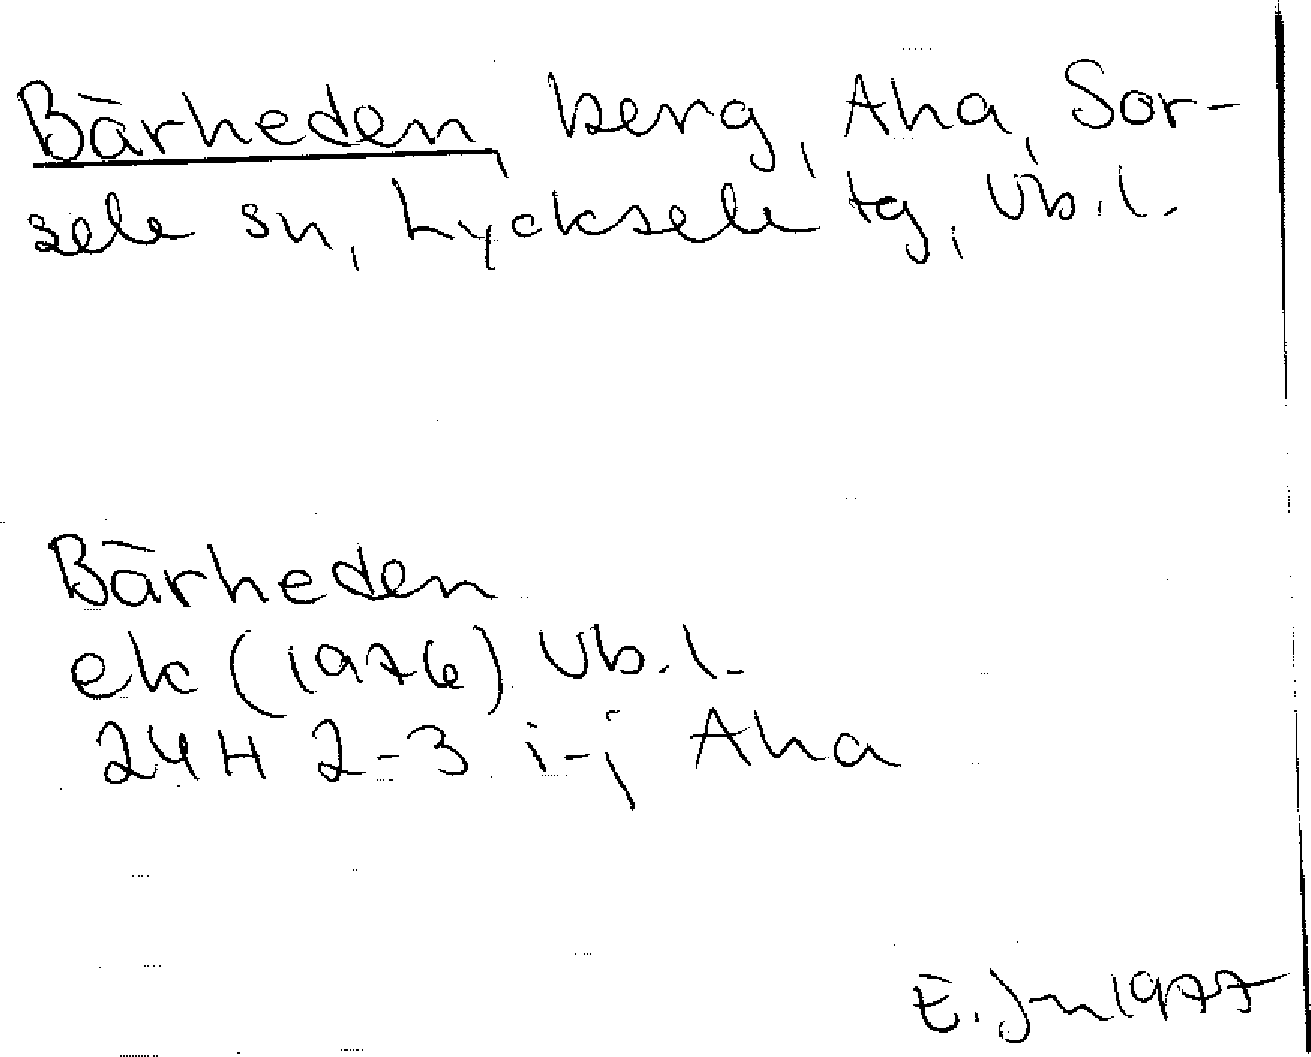 Bärheden, berg, Aha, Sor-
sele sn, Lycksele tg, Vb. l.
Bärheden
ek (1976) Vb. l.
24H 2-3 i-j Aha
E. Jn 1977